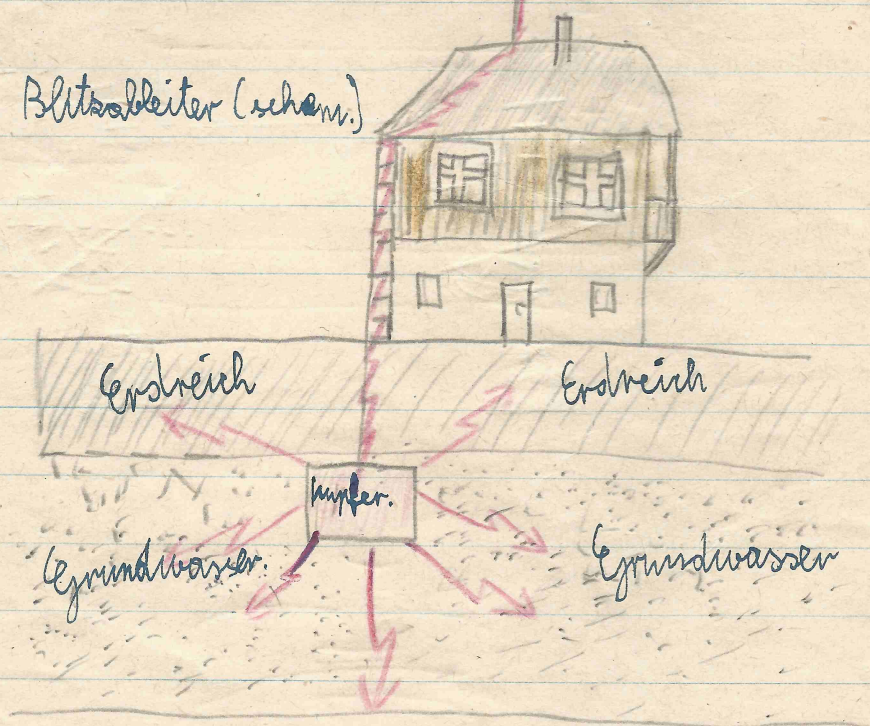 Blitzableiter (schem.)
Erdreich Erdreich
Kupfer.
Grundwasser. Grundwasser